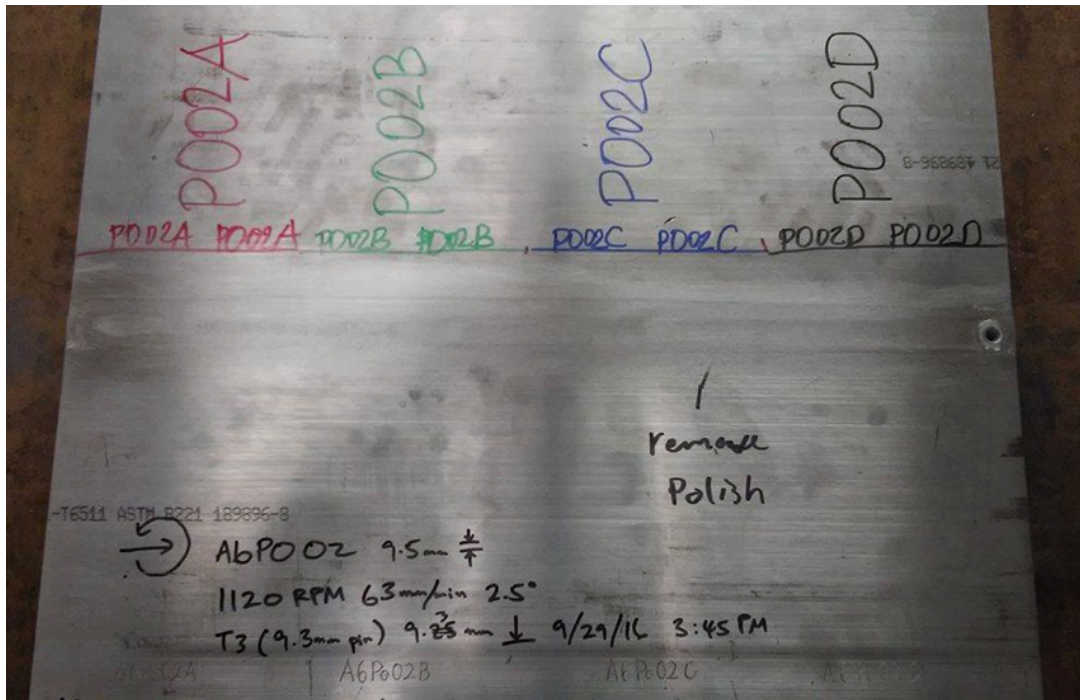 P002A P002B P002C P002D
B-968684
P002A P002A P002B P002B P002C P002C P002D P002D
remove
Polish
-T6511 ASTM B221 189896-8
A6P002 9.5mm
1120 RPM 63mm/min 2.5°
T3 (9.3mm pin) 9.3 mm ↓ 9/29/16 3:45 PM
A6P002A A6P002B A6P002C